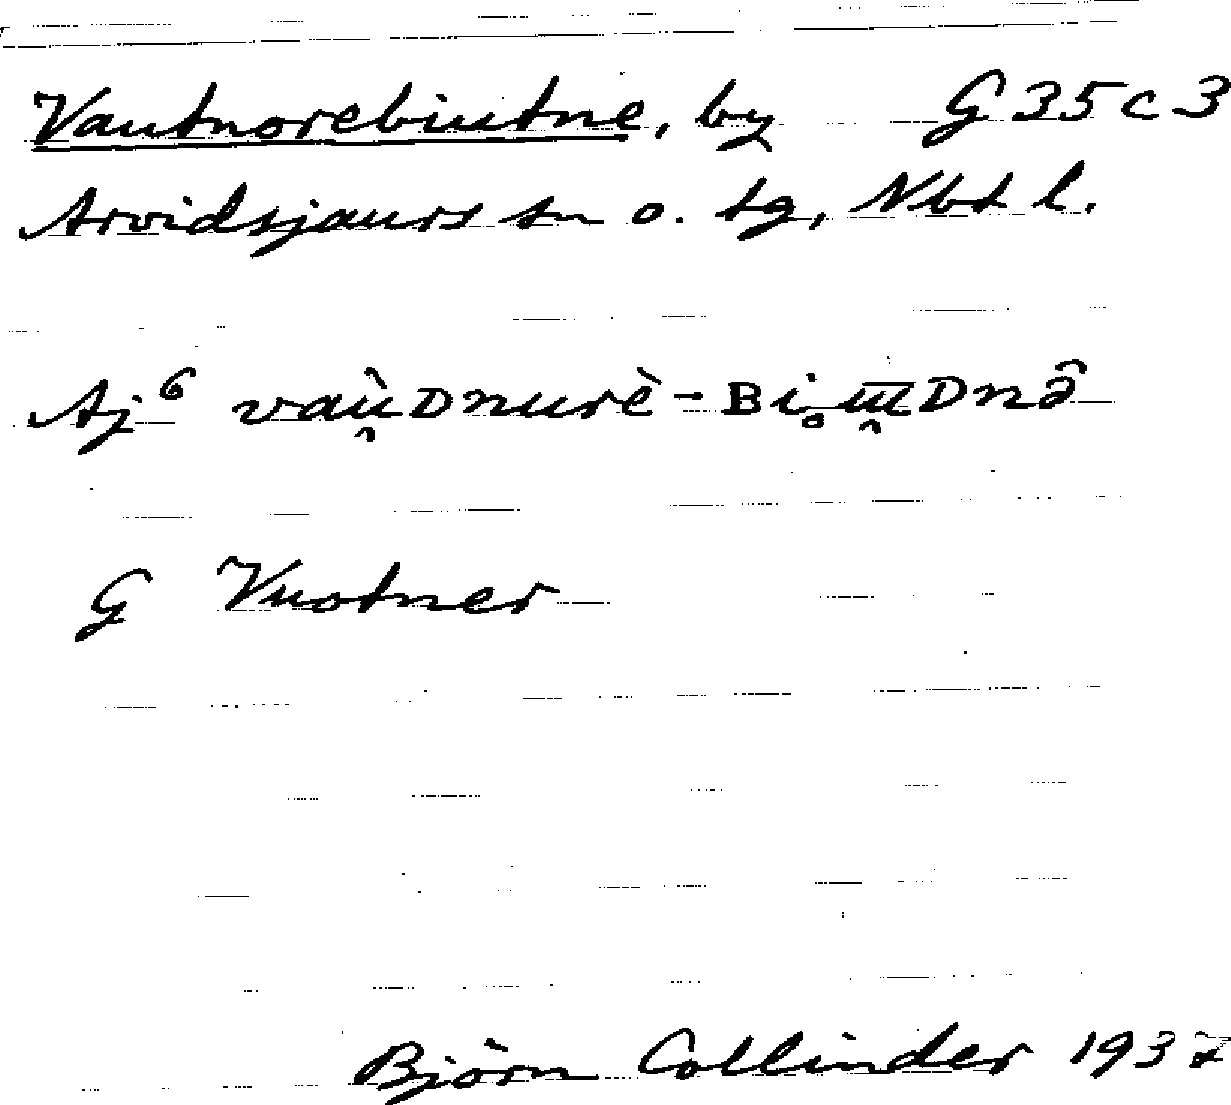 Vautnorebiutne, by G 35 c 3
Arvidsjaurs sn o. tg, Nbt l.
Aj⁶
G Vuotner
Björn Collinder 1937